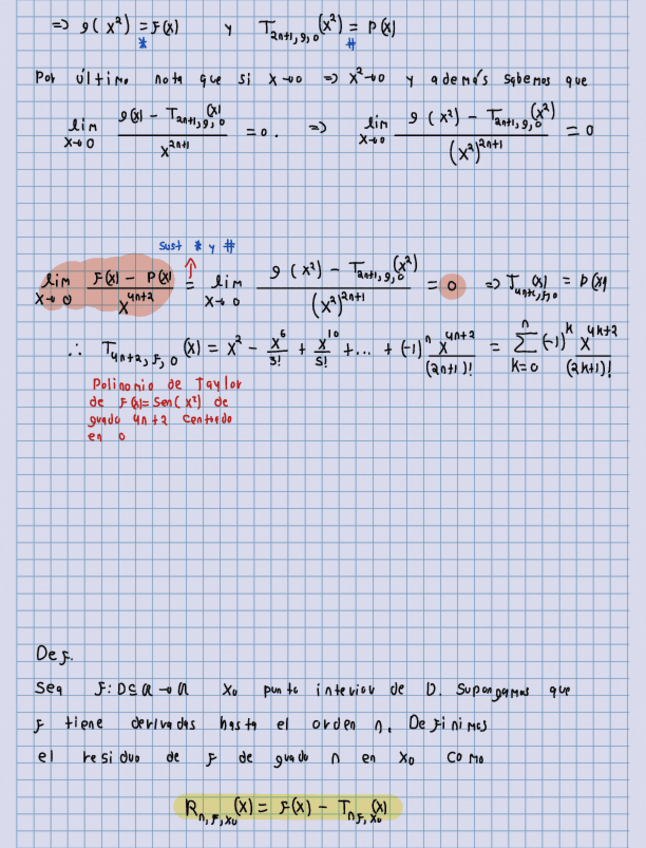 ⇒ g(x²) = f(x) y T₂ₙ₊₁,g,₀(x²) = P(x)
* #
Por último nota que si x→0 ⇒ x²→0 y además sabemos que
lim x→0 (g(x) − T₂ₙ₊₁,g,₀(x)) / x²ⁿ⁺¹ = 0. ⇒ lim x→0 (g(x²) − T₂ₙ₊₁,g,₀(x²)) / (x²)²ⁿ⁺¹ = 0
Sust * y #
lim x→0 (f(x) − P(x)) / x⁴ⁿ⁺² = lim x→0 (g(x²) − T₂ₙ₊₁,g,₀(x²)) / (x²)²ⁿ⁺¹ = 0 ⇒ T₄ₙ₊₂,f,₀(x) = P(x)
∴ T₄ₙ₊₂,f,₀(x) = x² − x⁶/3! + x¹⁰/5! + ... + (-1)ⁿ x⁴ⁿ⁺²/(2n+1)! = Σ k=0 n (-1)ᵏ x⁴ᵏ⁺²/(2k+1)!
Polinomio de Taylor
de f(x)=Sen(x²) de
grado 4n+2 centrado
en 0
Def.
Sea f: D⊆ℝ→ℝ x₀ punto interior de D. Supongamos que
f tiene derivadas hasta el orden n. Definimos
el residuo de f de grado n en x₀ como
Rₙ,f,x₀(x) = f(x) − Tₙ,f,x₀(x)